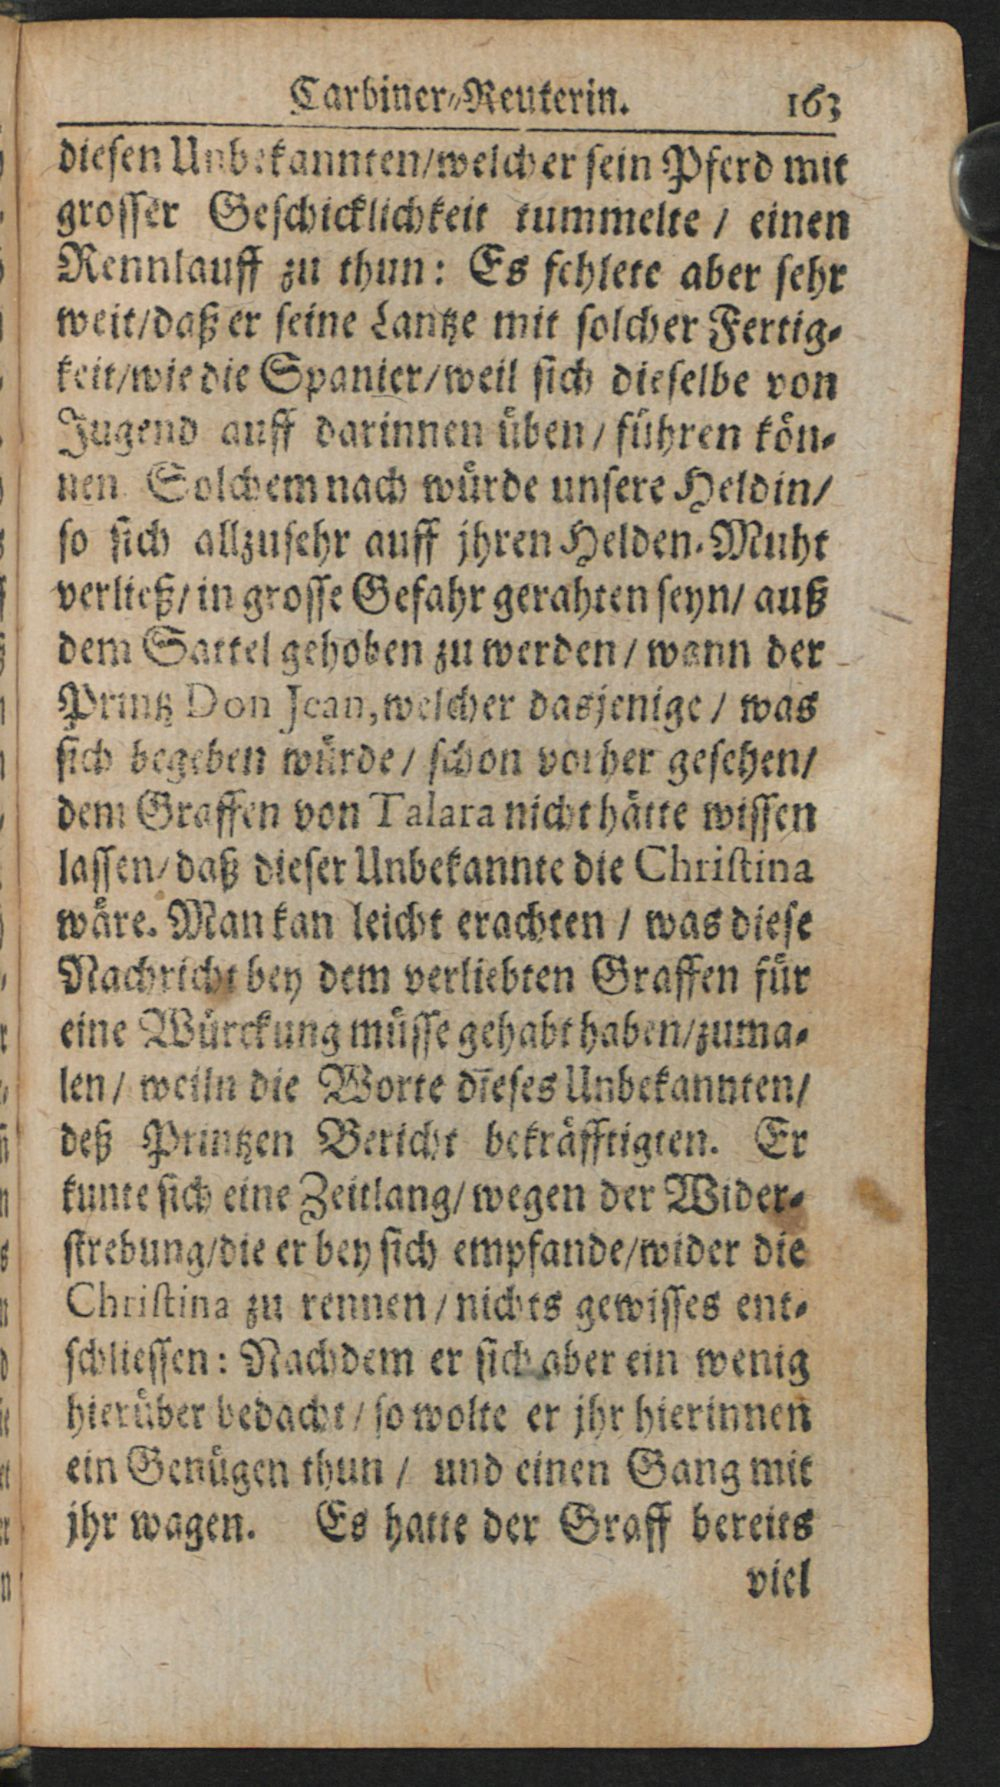 Carbiner-Reuterin. 163
diesen Unbekannten/welcher sein Pferd mit
grosser Geschicklichkeit tummelte / einen
Rennlauff zu thun: Es fehlete aber sehr
weit/daß er seine Lantze mit solcher Fertig-
keit/wie die Spanier/weil sich dieselbe von
Jugend auff darinnen üben / führen kön-
nen Solchem nach würde unsere Heldin/
so sich allzusehr auff jhren Helden-Muht
verließ/ in grosse Gefahr gerahten seyn/ auß
dem Sattel gehoben zu werden / wann der
Printz Don Jean, welcher dasjenige / was
sich begeben würde / schon vorher gesehen/
dem Graffen von Talara nicht hätte wissen
lassen/ daß dieser Unbekannte die Christina
wäre. Man kan leicht erachten / was diese
Nachricht bey dem verliebten Graffen für
eine Würckung müsse gehabt haben/zuma-
len / weiln die Worte dieses Unbekannten/
deß Printzen Bericht bekräfftigten. Er
kunte sich eine Zeitlang/ wegen der Wider-
strebung/die er bey sich empfande/wider die
Christina zu rennen / nichts gewisses ent-
schliessen: Nachdem er sich aber ein wenig
hierüber bedacht / so wolte er jhr hierinnen
ein Genügen thun / und einen Gang mit
jhr wagen. Es hatte der Graff bereits
viel